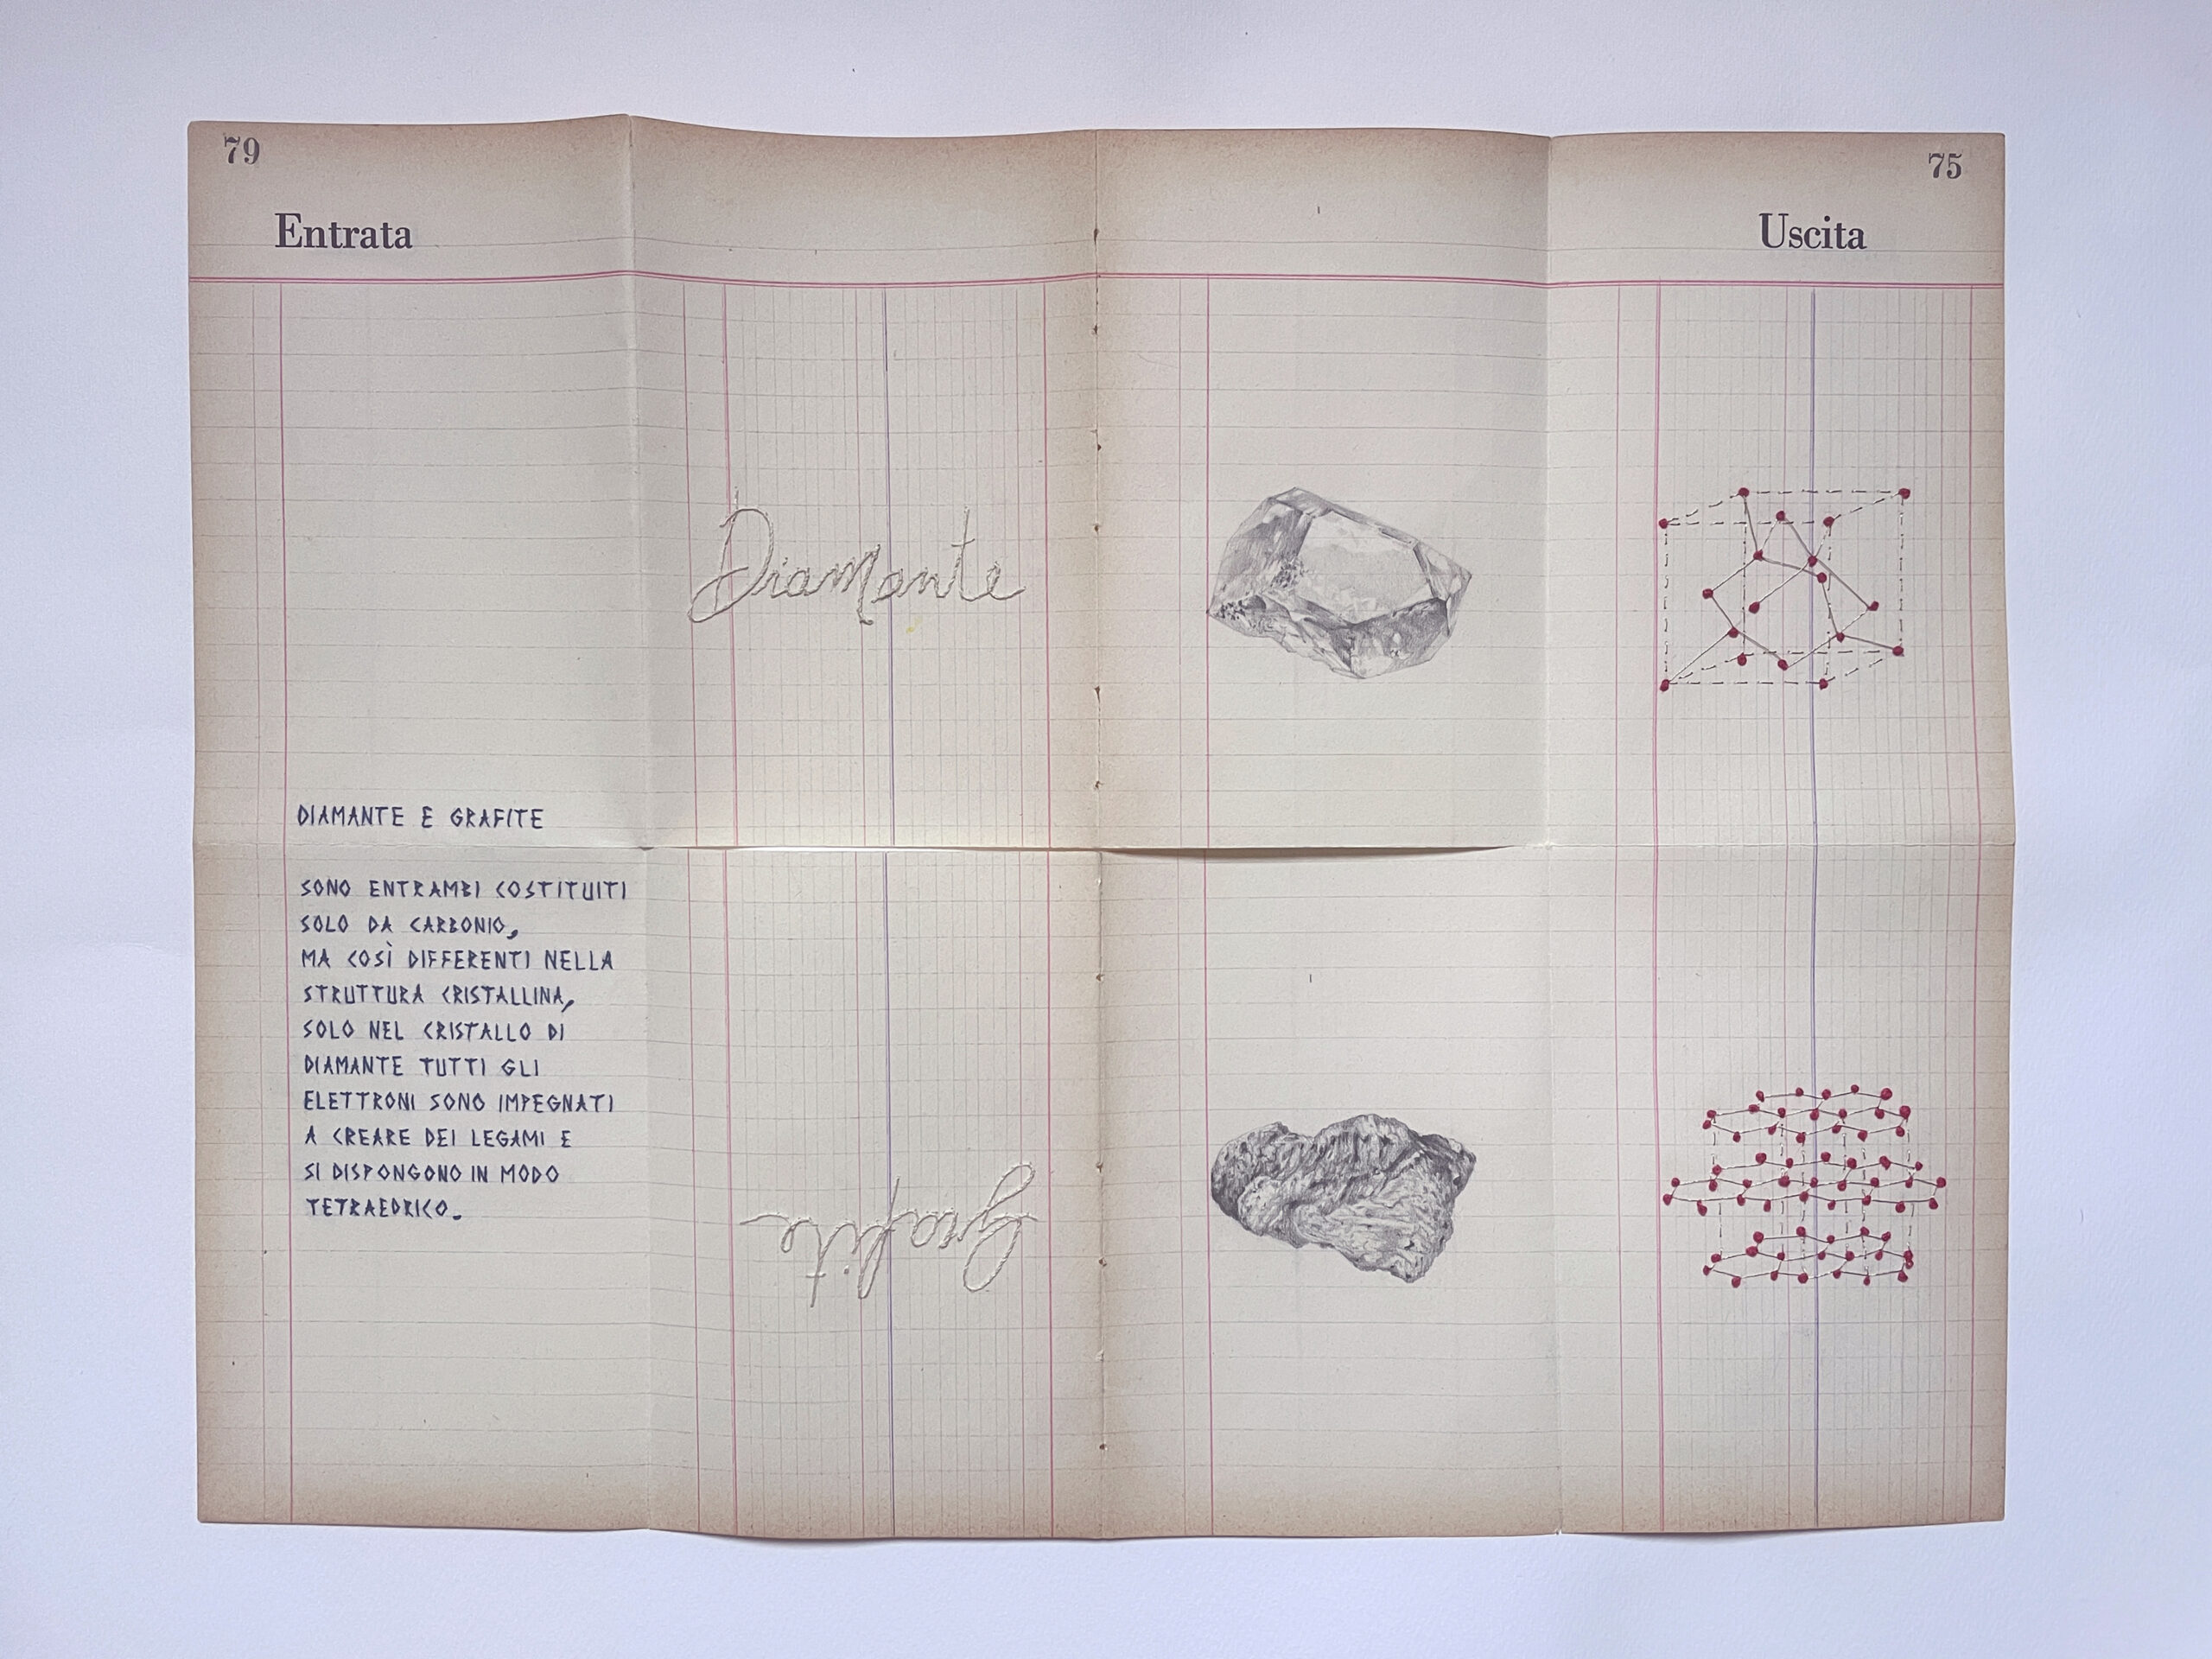 79
75
Entrata
Uscita
Diamante
DIAMANTE E GRAFITE
SONO ENTRAMBI COSTITUITI
SOLO DA CARBONIO,
MA COSÌ DIFFERENTI NELLA
STRUTTURA CRISTALLINA,
SOLO NEL CRISTALLO DI
DIAMANTE TUTTI GLI
ELETTRONI SONO IMPEGNATI
A CREARE DEI LEGAMI E
SI DISPONGONO IN MODO
TETRAEDRICO.
Grafite